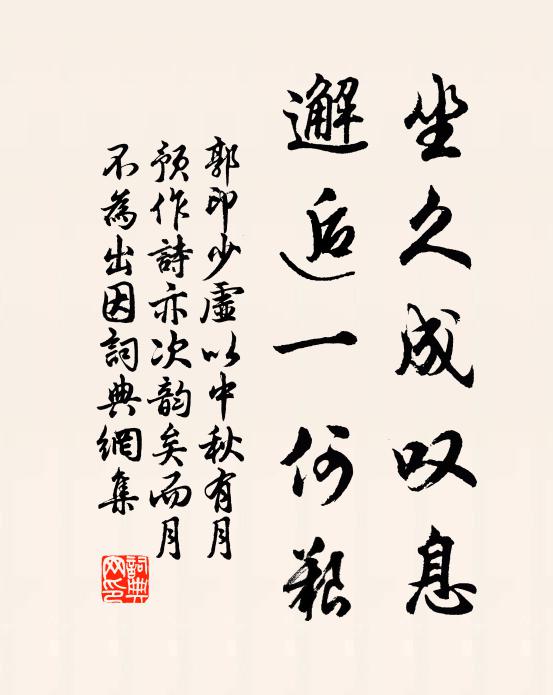 坐久成叹息
邂逅一何艰
郭印少虚以中秋有月
预作诗亦次韵矣而月
不为出因词典网集
词典网印